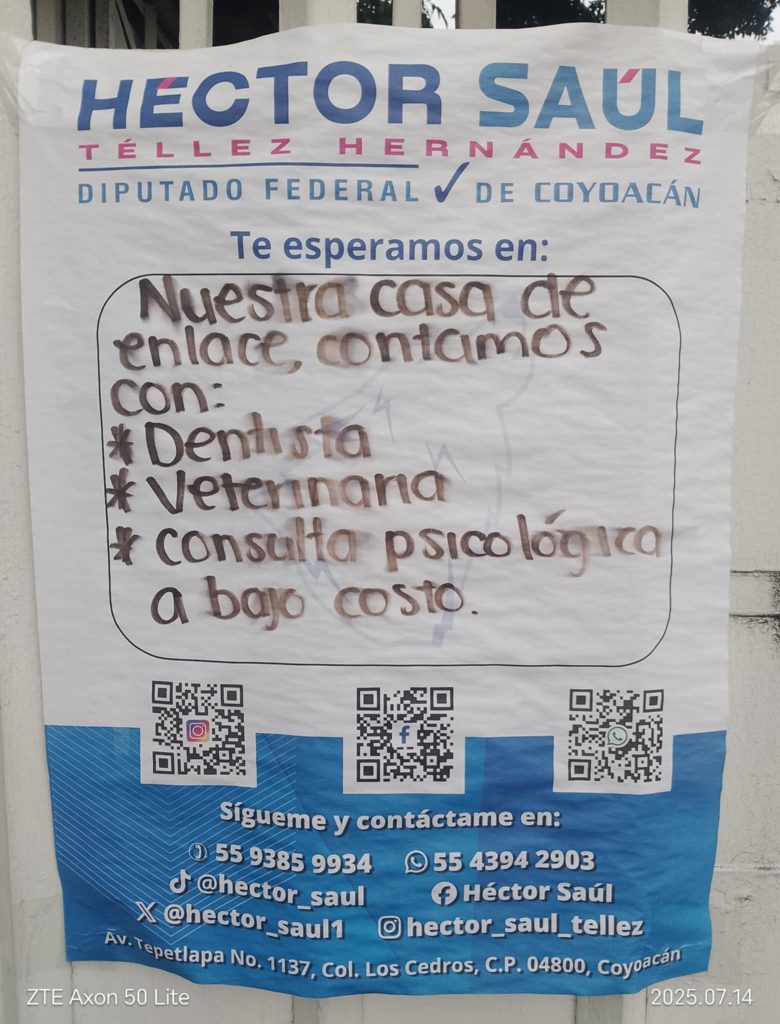 HÉCTOR SAÚL
TÉLLEZ HERNÁNDEZ
DIPUTADO FEDERAL ✓ DE COYOACÁN
Te esperamos en:
Nuestra casa de
enlace, contamos
con:
* Dentista
* Veterinaria
* Consulta psicológica
a bajo costo.
Sígueme y contáctame en:
55 9385 9934 55 4394 2903
@hector_saul Héctor Saúl
@hector_saul1 hector_saul_tellez
Av. Tepetlapa No. 1137, Col. Los Cedros, C.P. 04800, Coyoacán
ZTE Axon 50 Lite 2025.07.14